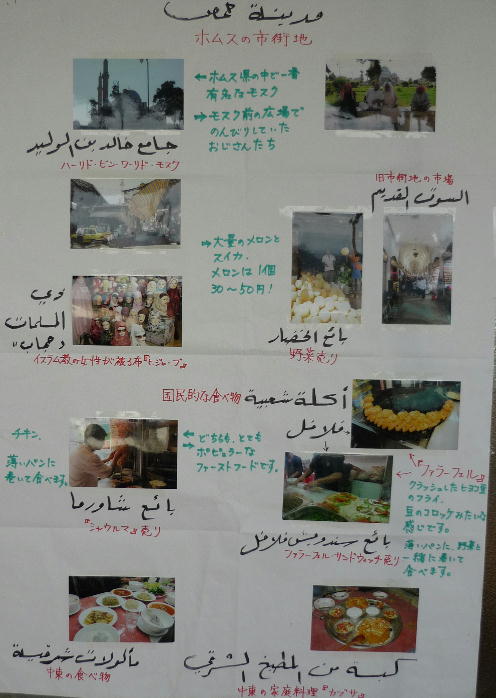 مدينة حمص
ホムスの市街地
← ホムス県の中で一番
有名なモスク
→ モスク前の広場で
のんびりしていた
おじさんたち
جامع خالد بن الوليد
ハーリド・ビン・ワリード・モスク
旧市街地の市場
السوق القديم
→ 大量のメロンと
スイカ.
メロンは1個
30〜50円!
زي
المسلمات
حجاب
イスラム教の女性が被る布『ヒジャーブ』
بائع الخضار
野菜売り
国民的な食べ物
أكلة شعبية
فلافل
← どちらも、とても
→ ポピュラーな
ファーストフードです。
チキン.
薄いパンに
巻いて食べます。
بائع شاورما
『シャウルマ』売り
←『ファラーフェル』
クラッシュしたヒヨコ豆
のフライ.
豆のコロッケみたいな
感じです。
薄いパンに、野菜と
一緒に巻いて
食べます。
بائع سندويش فلافل
ファラーフェル・サンドウィッチ売り
مأكولات شرقية
中東の食べ物
كبسة من المطبخ الشرقي
中東の家庭料理『カブサ』